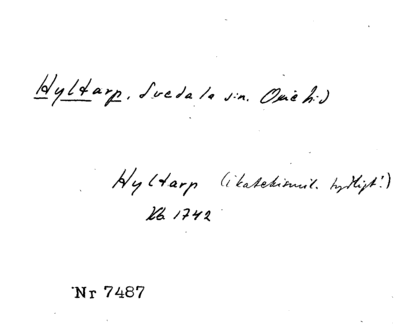 Hyltarp, Svedala sn. Oxie hd
Hyltarp (i katekismil. tydligt!)
Kb 1742
Nr 7487